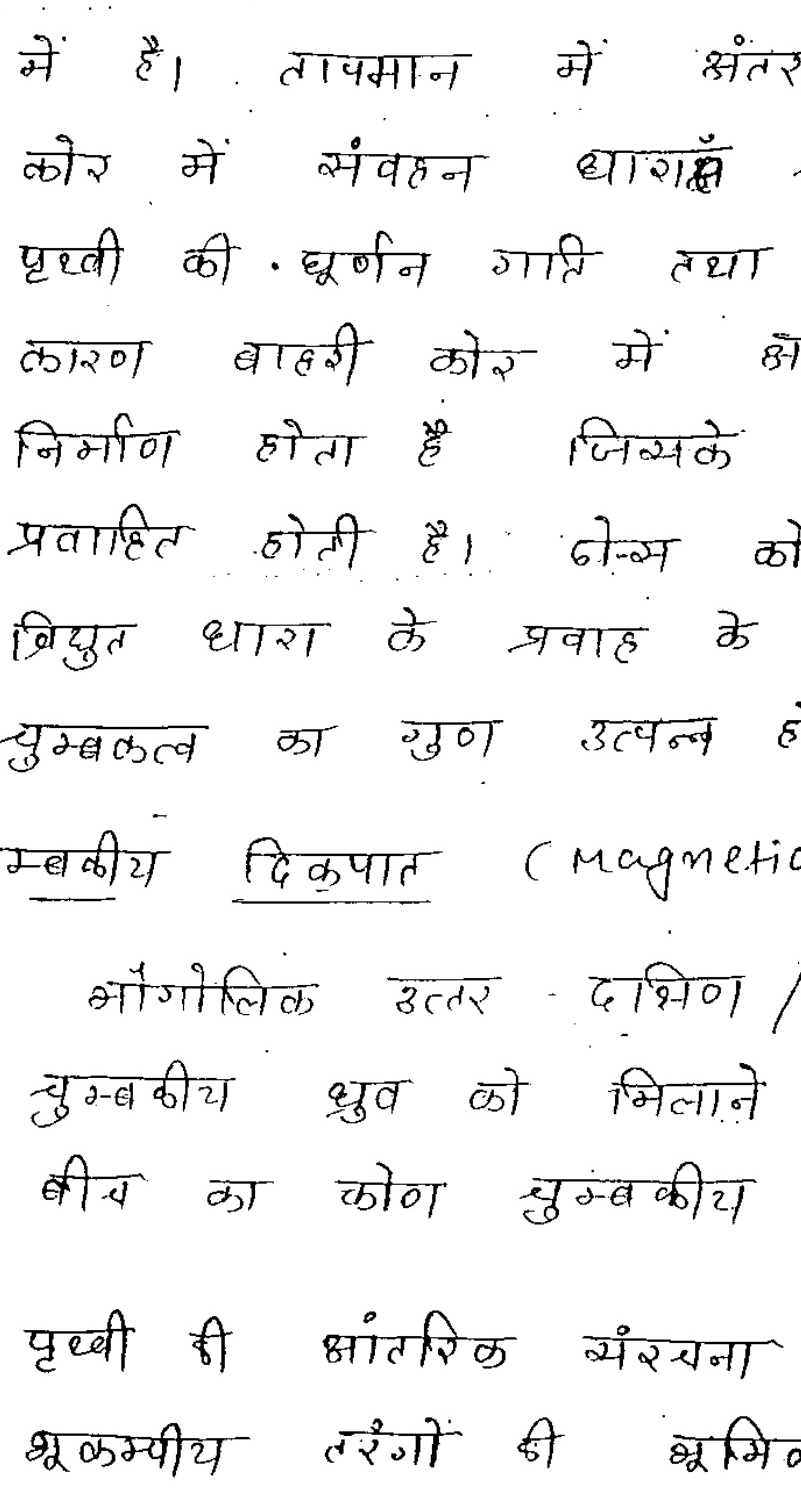 में है। तापमान में अंतर
कोर में संवहन धाराएँ
पृथ्वी की घूर्णन गति तथा
कारण बाहरी कोर में
निर्माण होता है जिसके
प्रवाहित होती है। ठोस को
विद्युत धारा के प्रवाह के
चुम्बकत्व का गुण उत्पन्न हो
म्बकीय दिकपात (Magnetic
भौगोलिक उत्तर - दक्षिण /
चुम्बकीय ध्रुव को मिलाने
बीच का कोण चुम्बकीय
पृथ्वी की आंतरिक संरचना
भूकम्पीय तरंगों की भूमि